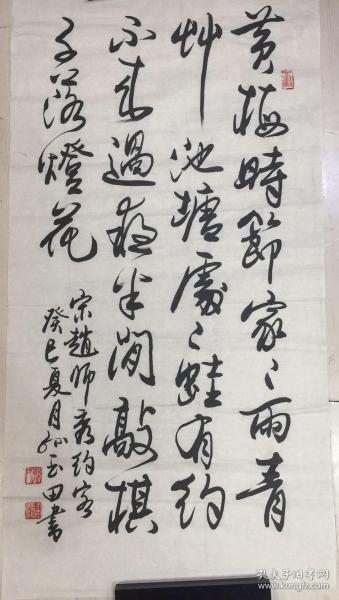 黄梅時節家〻雨青
艸池塘處〻蛙有約
不来過夜半閒敲棋
子落燈花
宋趙師秀約客
癸巳夏月 田書
孔夫子旧书网
www.kongfz.com